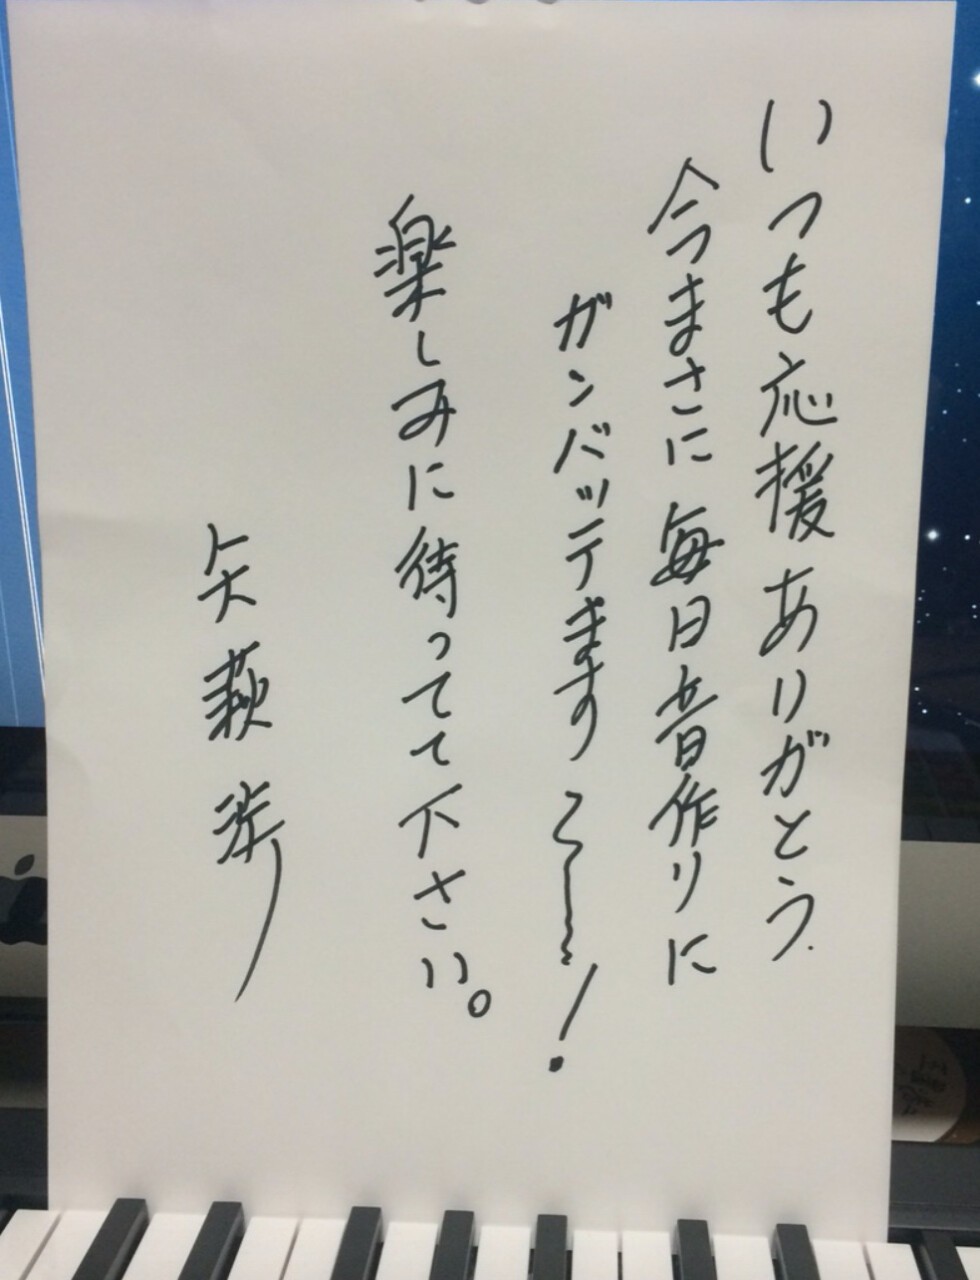 いつも応援ありがとう
今まさに毎日音作りに
ガンバッテます〜!
楽しみに待ってて下さい。
矢萩渉